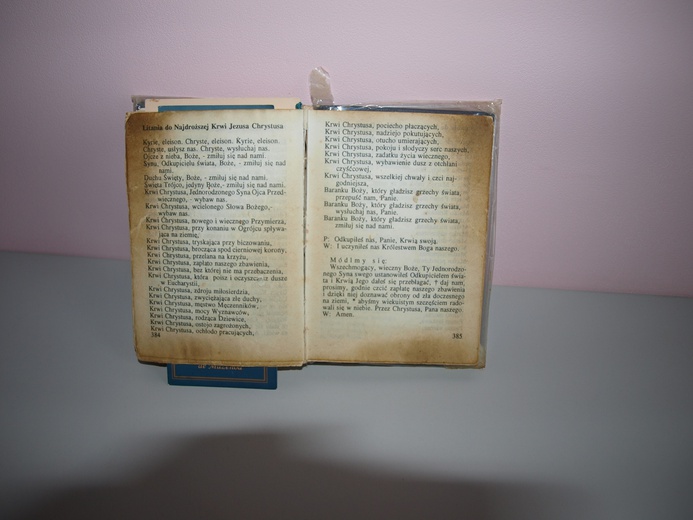 Litania do Najdroższej Krwi Jezusa Chrystusa
Kyrie, eleison. Chryste, eleison. Kyrie, eleison.
Chryste, usłysz nas. Chryste, wysłuchaj nas.
Ojcze z nieba, Boże, - zmiłuj się nad nami.
Synu, Odkupicielu świata, Boże, - zmiłuj się nad
nami.
Duchu Święty, Boże, - zmiłuj się nad nami.
Święta Trójco, jedyny Boże, - zmiłuj się nad nami.
Krwi Chrystusa, Jednorodzonego Syna Ojca Przed-
wiecznego, - wybaw nas.
Krwi Chrystusa, wcielonego Słowa Bożego,-
wybaw nas.
Krwi Chrystusa, nowego i wiecznego Przymierza,
Krwi Chrystusa, przy konaniu w Ogrójcu spływa-
jąca na ziemię,
Krwi Chrystusa, tryskająca przy biczowaniu,
Krwi Chrystusa, brocząca spod cierniowej korony,
Krwi Chrystusa, przelana na krzyżu,
Krwi Chrystusa, zapłato naszego zbawienia,
Krwi Chrystusa, bez której nie ma przebaczenia,
Krwi Chrystusa, która poisz i oczyszczasz dusze
w Eucharystii,
Krwi Chrystusa, zdroju miłosierdzia,
Krwi Chrystusa, zwyciężająca złe duchy,
Krwi Chrystusa, męstwo Męczenników,
Krwi Chrystusa, mocy Wyznawców,
Krwi Chrystusa, rodząca Dziewice,
Krwi Chrystusa, ostojo zagrożonych,
Krwi Chrystusa, ochłodo pracujących,
384
Krwi Chrystusa, pociecho płaczących,
Krwi Chrystusa, nadziejo pokutujących,
Krwi Chrystusa, otucho umierających,
Krwi Chrystusa, pokoju i słodyczy serc naszych,
Krwi Chrystusa, zadatku życia wiecznego,
Krwi Chrystusa, wybawienie dusz z otchłani
czyśćcowej,
Krwi Chrystusa, wszelkiej chwały i czci naj-
godniejsza,
Baranku Boży, który gładzisz grzechy świata,
przepuść nam, Panie.
Baranku Boży, który gładzisz grzechy świata,
wysłuchaj nas, Panie.
Baranku Boży, który gładzisz grzechy świata,
zmiłuj się nad nami.
P: Odkupiłeś nas, Panie, Krwią swoją.
W: I uczyniłeś nas Królestwem Boga naszego.
Módlmy się:
Wszechmogący, wieczny Boże, Ty Jednorodzo-
nego Syna swego ustanowiłeś Odkupicielem świa-
ta i Krwią Jego dałeś się przebłagać, † daj nam,
prosimy, godnie czcić zapłatę naszego zbawienia
i dzięki niej doznawać obrony od zła doczesnego
na ziemi, * abyśmy wiekuistym szczęściem rado-
wali się w niebie. Przez Chrystusa, Pana naszego
W: Amen.
385